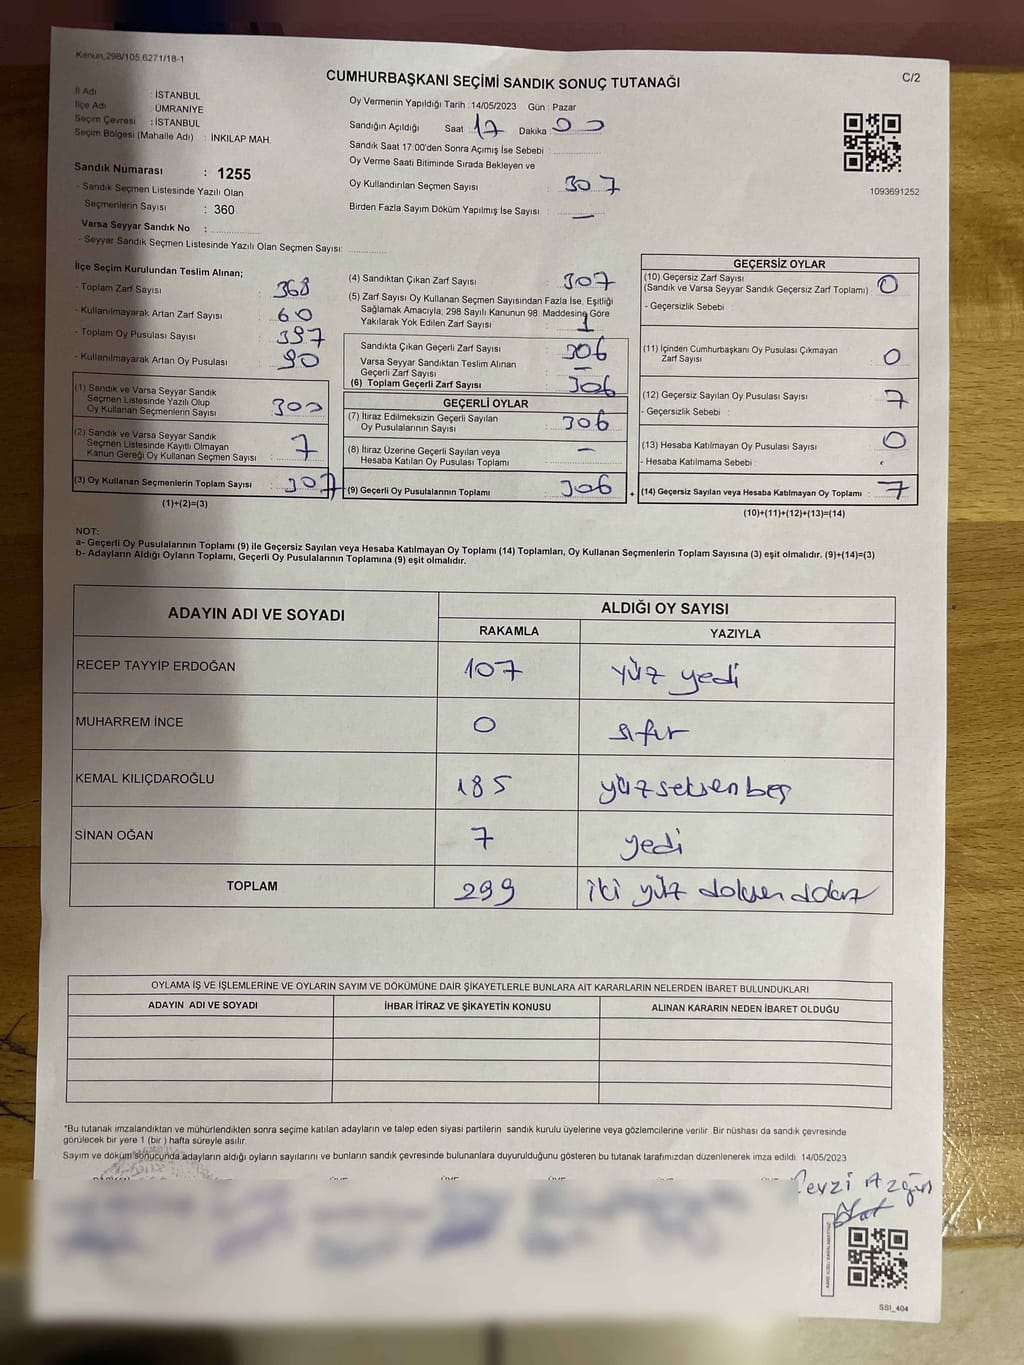 Kanun,298/105,6271/18-1
CUMHURBAŞKANI SEÇİMİ SANDIK SONUÇ TUTANAĞI
C/2
İl Adı : İSTANBUL
İlçe Adı : ÜMRANİYE
Seçim Çevresi : İSTANBUL
Seçim Bölgesi (Mahalle Adı) : İNKILAP MAH.
Sandık Numarası : 1255
- Sandık Seçmen Listesinde Yazılı Olan
Seçmenlerin Sayısı : 360
Varsa Seyyar Sandık No :
- Seyyar Sandık Seçmen Listesinde Yazılı Olan Seçmen Sayısı:
Oy Vermenin Yapıldığı Tarih : 14/05/2023 Gün : Pazar
Sandığın Açıldığı Saat 17 Dakika 00
Sandık Saat 17:00'den Sonra Açımış İse Sebebi :
Oy Verme Saati Bitiminde Sırada Bekleyen ve
Oy Kullandırılan Seçmen Sayısı : 307
Birden Fazla Sayım Döküm Yapılmış İse Sayısı : —
1093691252
İlçe Seçim Kurulundan Teslim Alınan;
- Toplam Zarf Sayısı : 368
- Kullanılmayarak Artan Zarf Sayısı : 60
- Toplam Oy Pusulası Sayısı : 397
- Kullanılmayarak Artan Oy Pusulası : 90
(1) Sandık ve Varsa Seyyar Sandık
Seçmen Listesinde Yazılı Olup
Oy Kullanan Seçmenlerin Sayısı : 300
(2) Sandık ve Varsa Seyyar Sandık
Seçmen Listesinde Kayıtlı Olmayan
Kanun Gereği Oy Kullanan Seçmen Sayısı : 7
(3) Oy Kullanan Seçmenlerin Toplam Sayısı : 307
(1)+(2)=(3)
(4) Sandıktan Çıkan Zarf Sayısı : 307
(5) Zarf Sayısı Oy Kullanan Seçmen Sayısından Fazla İse, Eşitliği
Sağlamak Amacıyla; 298 Sayılı Kanunun 98. Maddesine Göre
Yakılarak Yok Edilen Zarf Sayısı : 1
Sandıkta Çıkan Geçerli Zarf Sayısı : 306
Varsa Seyyar Sandıktan Teslim Alınan
Geçerli Zarf Sayısı : —
(6) Toplam Geçerli Zarf Sayısı : 306
GEÇERLİ OYLAR
(7) İtiraz Edilmeksizin Geçerli Sayılan
Oy Pusulalarının Sayısı : 306
(8) İtiraz Üzerine Geçerli Sayılan veya
Hesaba Katılan Oy Pusulası Toplamı : —
(9) Geçerli Oy Pusulalarının Toplamı : 306
+
GEÇERSİZ OYLAR
(10) Geçersiz Zarf Sayısı
(Sandık ve Varsa Seyyar Sandık Geçersiz Zarf Toplamı) : 0
- Geçersizlik Sebebi :
(11) İçinden Cumhurbaşkanı Oy Pusulası Çıkmayan
Zarf Sayısı : 0
(12) Geçersiz Sayılan Oy Pusulası Sayısı : 7
- Geçersizlik Sebebi :
(13) Hesaba Katılmayan Oy Pusulası Sayısı : 0
- Hesaba Katılmama Sebebi :
(14) Geçersiz Sayılan veya Hesaba Katılmayan Oy Toplamı : 7
(10)+(11)+(12)+(13)=(14)
NOT:
a- Geçerli Oy Pusulalarının Toplamı (9) ile Geçersiz Sayılan veya Hesaba Katılmayan Oy Toplamı (14) Toplamları, Oy Kullanan Seçmenlerin Toplam Sayısına (3) eşit olmalıdır. (9)+(14)=(3)
b- Adayların Aldığı Oyların Toplamı, Geçerli Oy Pusulalarının Toplamına (9) eşit olmalıdır.
ADAYIN ADI VE SOYADI
ALDIĞI OY SAYISI
RAKAMLA YAZIYLA
RECEP TAYYİP ERDOĞAN 107 yüz yedi
MUHARREM İNCE 0 sıfır
KEMAL KILIÇDAROĞLU 185 yüzseksenbeş
SİNAN OĞAN 7 yedi
TOPLAM 299 iki yüz
OYLAMA İŞ VE İŞLEMLERİNE VE OYLARIN SAYIM VE DÖKÜMÜNE DAİR ŞİKAYETLERLE BUNLARA AİT KARARLARIN NELERDEN İBARET BULUNDUKLARI
ADAYIN ADI VE SOYADI İHBAR İTİRAZ VE ŞİKAYETİN KONUSU ALINAN KARARIN NEDEN İBARET OLDUĞU
*Bu tutanak imzalandıktan ve mühürlendikten sonra seçime katılan adayların ve talep eden siyasi partilerin sandık kurulu üyelerine veya gözlemcilerine verilir. Bir nüshası da sandık çevresinde
görülecek bir yere 1 (bir ) hafta süreyle asılır.
Sayım ve döküm sonucunda adayların aldığı oyların sayılarını ve bunların sandık çevresinde bulunanlara duyurulduğunu gösteren bu tutanak tarafımızdan düzenlenerek imza edildi. 14/05/2023
SSI_404